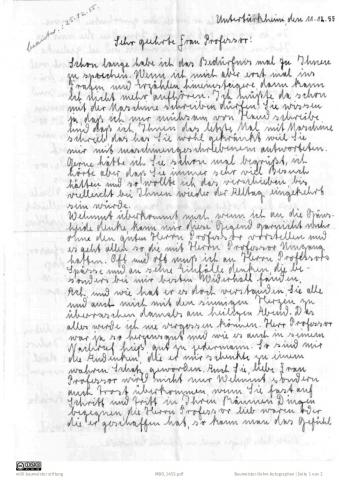 beantw. 25.12.55.
Untertürkheim den 11.12.55
Sehr geehrte Frau Professor!
Schon lange habe ich das Bedürfnis mal zu Ihnen
zu sprechen. Wenn ich mich aber erst mal ins
Fragen und Erzählen hineinsteigere dann kann
ich nicht mehr aufhören. Ich müßte da schon
mit der Maschine schreiben dürfen! Sie wissen
ja, daß ich nur mühsam von Hand schreibe
und daß ich Ihnen das letzte Mal mit Maschine
schrieb das hat Sie wohl gekränkt weil Sie
mir mit maschinengeschriebenem antworteten.
Gerne hätte ich Sie schon mal begrüßt, ich
hörte aber daß Sie immer sehr viel Besuch
hätten und so wollte ich das verschieben, bis
vielleicht bei Ihnen wieder der Alltag eingekehrt
sein würde.
Wehmut überkommt mich, wenn ich an die Gäns-
heide denke kann mir diese Gegend garnicht mehr
ohne den guten Herrn Professor vorstellen und
es geht allen so die mit Herrn Professor Umgang
hatten. Oft und oft muß ich an Herrn Professors
Spässe und an seine Einfälle denken die be-
sonders bei mir besten Widerhall fanden.
Ach, und wie hat er es doch verstanden Sie alle
und auch mich mit den sinnigen Herzen zu
überraschen damals am heiligen Abend. Das
alles werde ich nie vergessen können. Herr Professor
war ja so herzensgut und wie es auch in seinem
Nachruf hieß gut zu jedermann. So sind mir
die Andenken, die er mir schenkte zu einem
wahren Schatz geworden. Und Sie, liebe Frau
Professor wird nicht nur Wehmut sondern
auch Trost überkommen wenn Sie fast auf
Schritt und Tritt in Ihren Räumen Dingen
begegnen die Herrn Professor lieb waren oder
die er geschaffen hat, so kann man das Gefühl
willi baumeister stiftung
Baumeister-Rehm Autographen | Seite 1 von 2